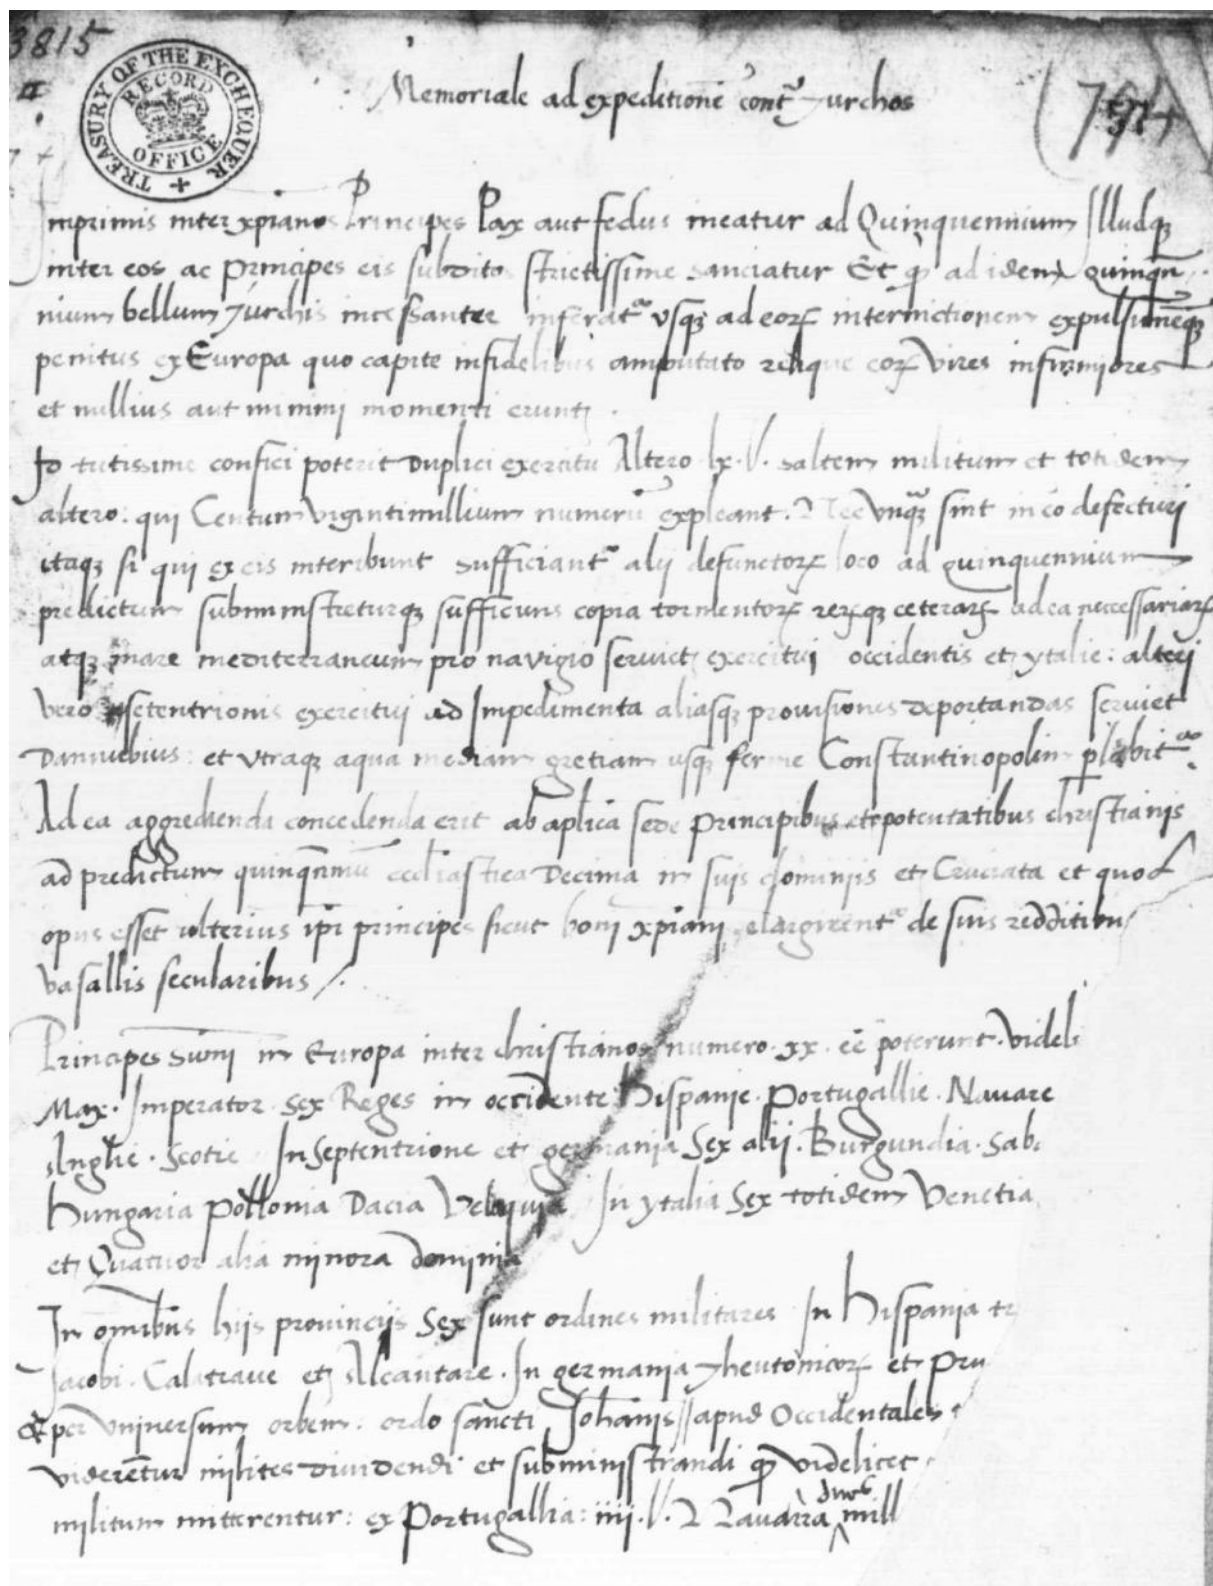 3815
TREASURY OF THE EXCHEQUER
RECORD
OFFICE
Memoriale ad expeditionē contᵃ Turchos
Inprimis inter xpianos Principes Pax aut fedus ineatur ad Quinquennium Illudqꝫ
inter eos ac principes eis subditos strictissime sanciatur Et qᷓ ad idem quinqn̄
nium bellum Turchis incessanter inferatᵘʳ vsqꝫ ad eorꝝ internictionem expulsionēqꝫ
penitus ex Europa quo capite infidelibus amputato relique eorꝝ vires infirmiores
et nullius aut minimi momenti erunt
Id tutissime confici poterit duplici exercitu Altero lx. l̷. saltem militum et totidem
altero: qui Centum vigintimillium numerū expleant. Nec vnqᷓ sint in eo defectivi
itaqꝫ si qui ex eis interibunt sufficiantᵘʳ alij defunctorꝝ loco ad quinquennium
predictum subministreturqꝫ sufficiens copia tormentorꝝ rerꝝqꝫ ceterarꝝ ad ea necessariarꝝ
atqꝫ mare mediterraneum pro navigio serviet exercitui occidentis et ytalie: alteri
vero setentrionis exercitui ad Impedimenta aliasqꝫ provisiones deportandas serviet
Dannubius: et vtraqꝫ aqua mediam gretiam usqꝫ ferme Constantinopolim ꝑlabitᵘʳ.
Ad ea aggredienda concedenda erit ab aplica sede principibus et potentatibus christianis
ad predictum quinqn̄niū eccliastica Decima in suis dominijs et Cruciata et quod
opus esset ulterius ipī principes sicut boni xpiani elargirentᵘʳ de suis redditibu
vasallis secularibus /.
Principes sum̄i in Europa inter christianos numero. xx. eē poterunt. videli
Max. Imperator. Sex Reges in occidente Hispanie. Portugallie. Navare
Anglie. Scotie In Septentrione et germania Sex alij. Burgundia. Sab
Hungaria Pollonia Dacia Velaquia In ytalia Sex totidem Venetia
et Quatuor alia minora dominia
In omībus hijs provincijs Sex sunt ordines militares In Hispania tr
Jacobi. Calatrave et Alcantare. In germania Theutonicorꝝ et Pru
Et per vniversum orbem: ordo sancti Johanis // apud Occidentales
viderentur milites dividendi et subministrandi qᷓ videlicet
militum mitterentur: ex Portugallia: iiij. l̷. Navarra duo mill